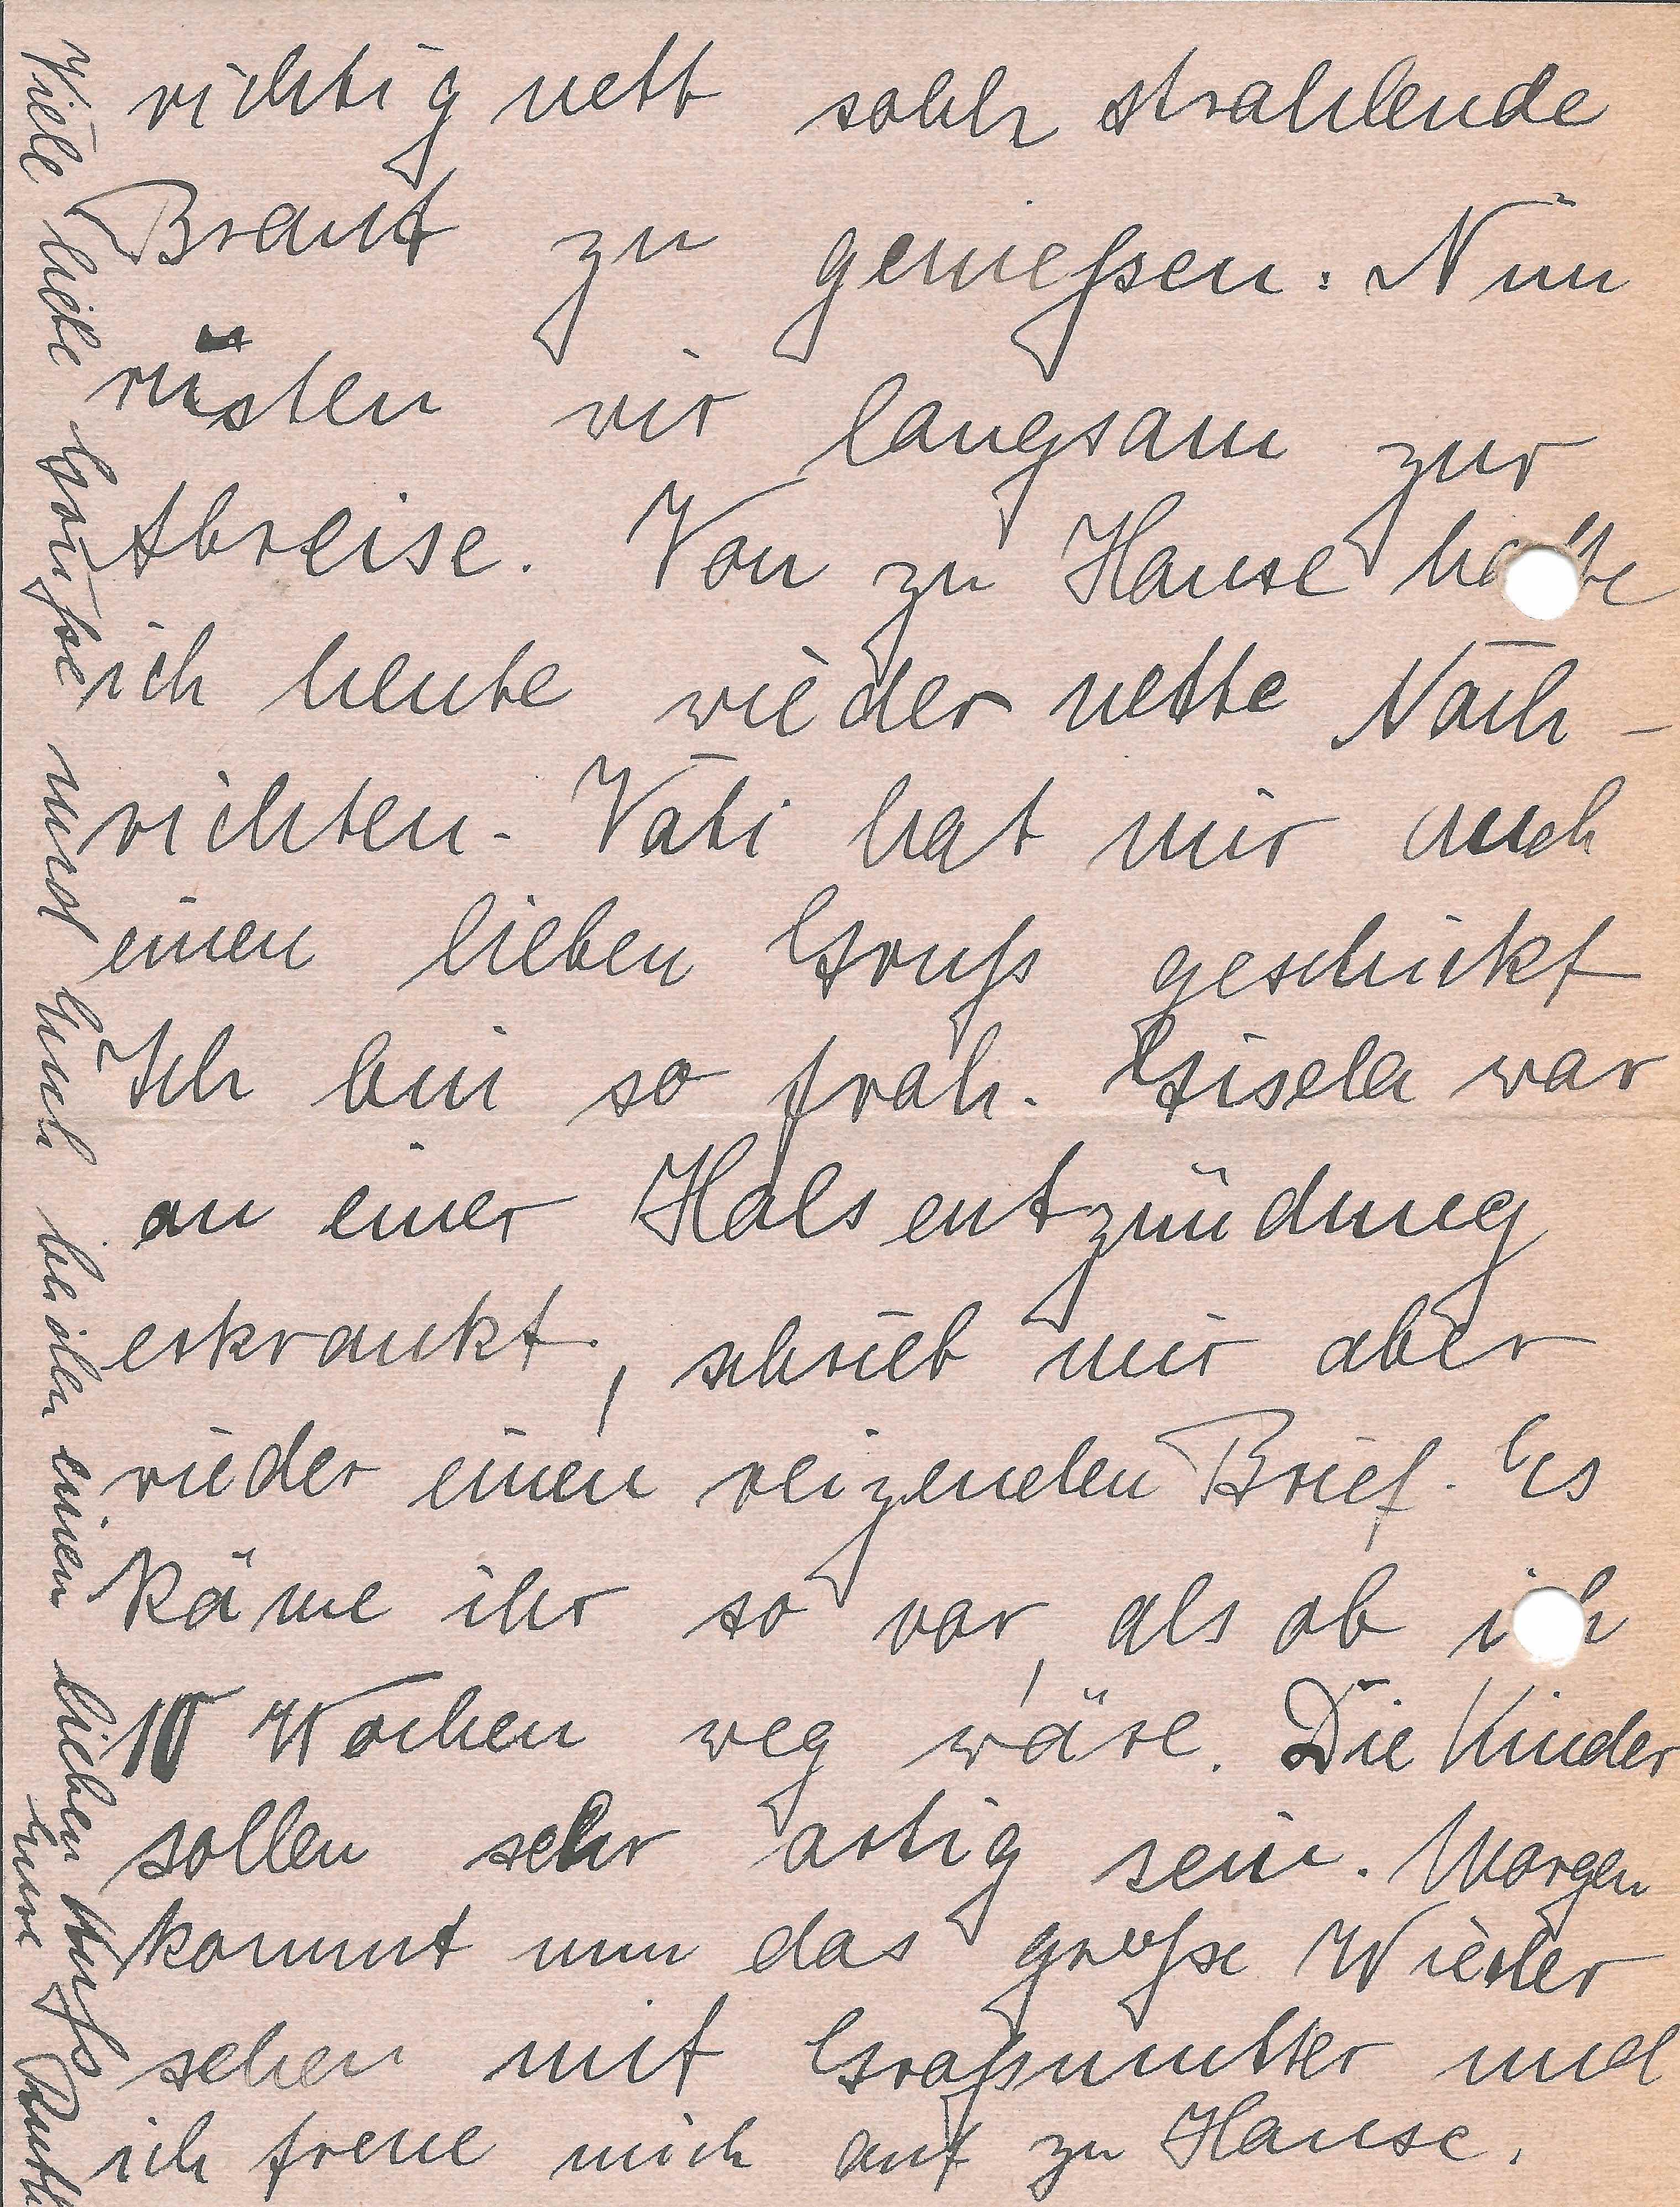 richtig nett solch strahlende
Braut zu genießen. Nun
rüsten wir langsam zur
Abreise. Von zu Hause hatte
ich heute wieder nette Nach-
richten. Vati hat mir auch
einen lieben Gruß geschickt
Ich bin so froh. Gisela war
an einer Halsentzündung
erkrankt, schrieb mir aber
wieder einen reizenden Brief. Es
käme ihr so vor, als ob ich
10 Wochen weg wäre. Die Kinder
sollen sehr artig sein. Morgen
kommt nun das große Wieder
sehen mit Großmutter und
ich freue mich auf zu Hause.
Viele liebe Grüße und Euch beiden einen lieben Kuß
Eure Ruth